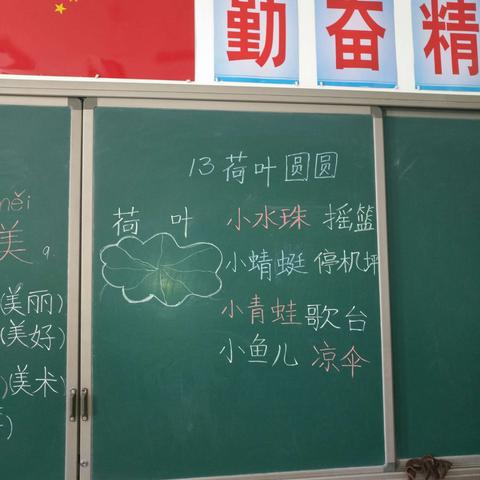 勤 奋 精
měi
美
(美丽)
(美好)
(美术)
13 荷叶圆圆
荷 叶
小水珠 摇篮
小蜻蜓 停机坪
小青蛙 歌台
小鱼儿 凉伞